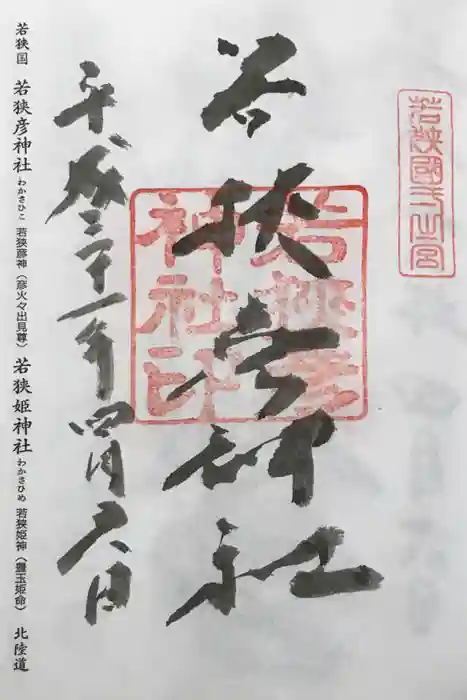 若狭國一之宮
若狭彦神社
若狭彦神社印
平成三十一年四月六日
若狭国 若狭彦神社 わかさひこ 若狭彦神(彦火々出見尊) 若狭姫神社 わかさひめ 若狭姫神(豊玉姫命) 北陸道